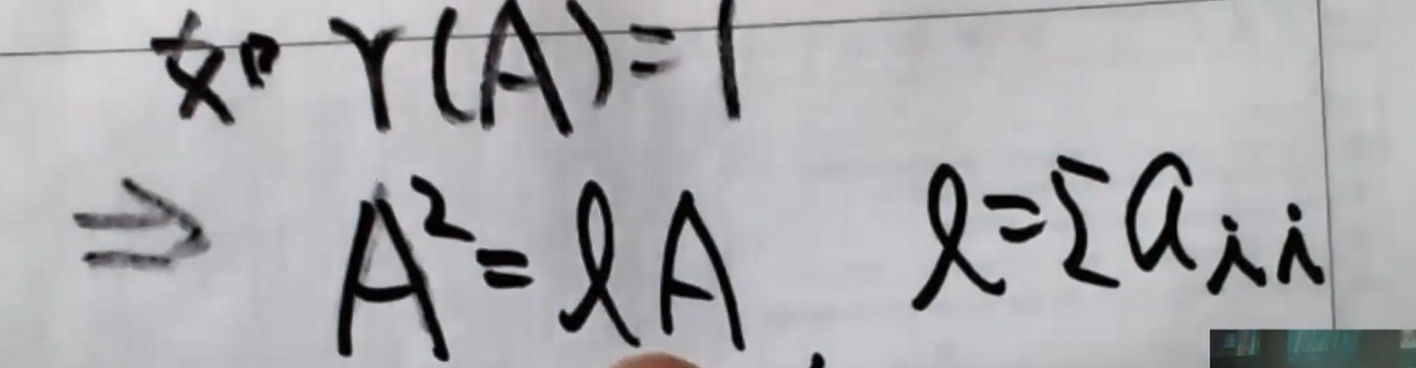 如 r(A)=1
⇒ A²=lA, l=Σaᵢᵢ